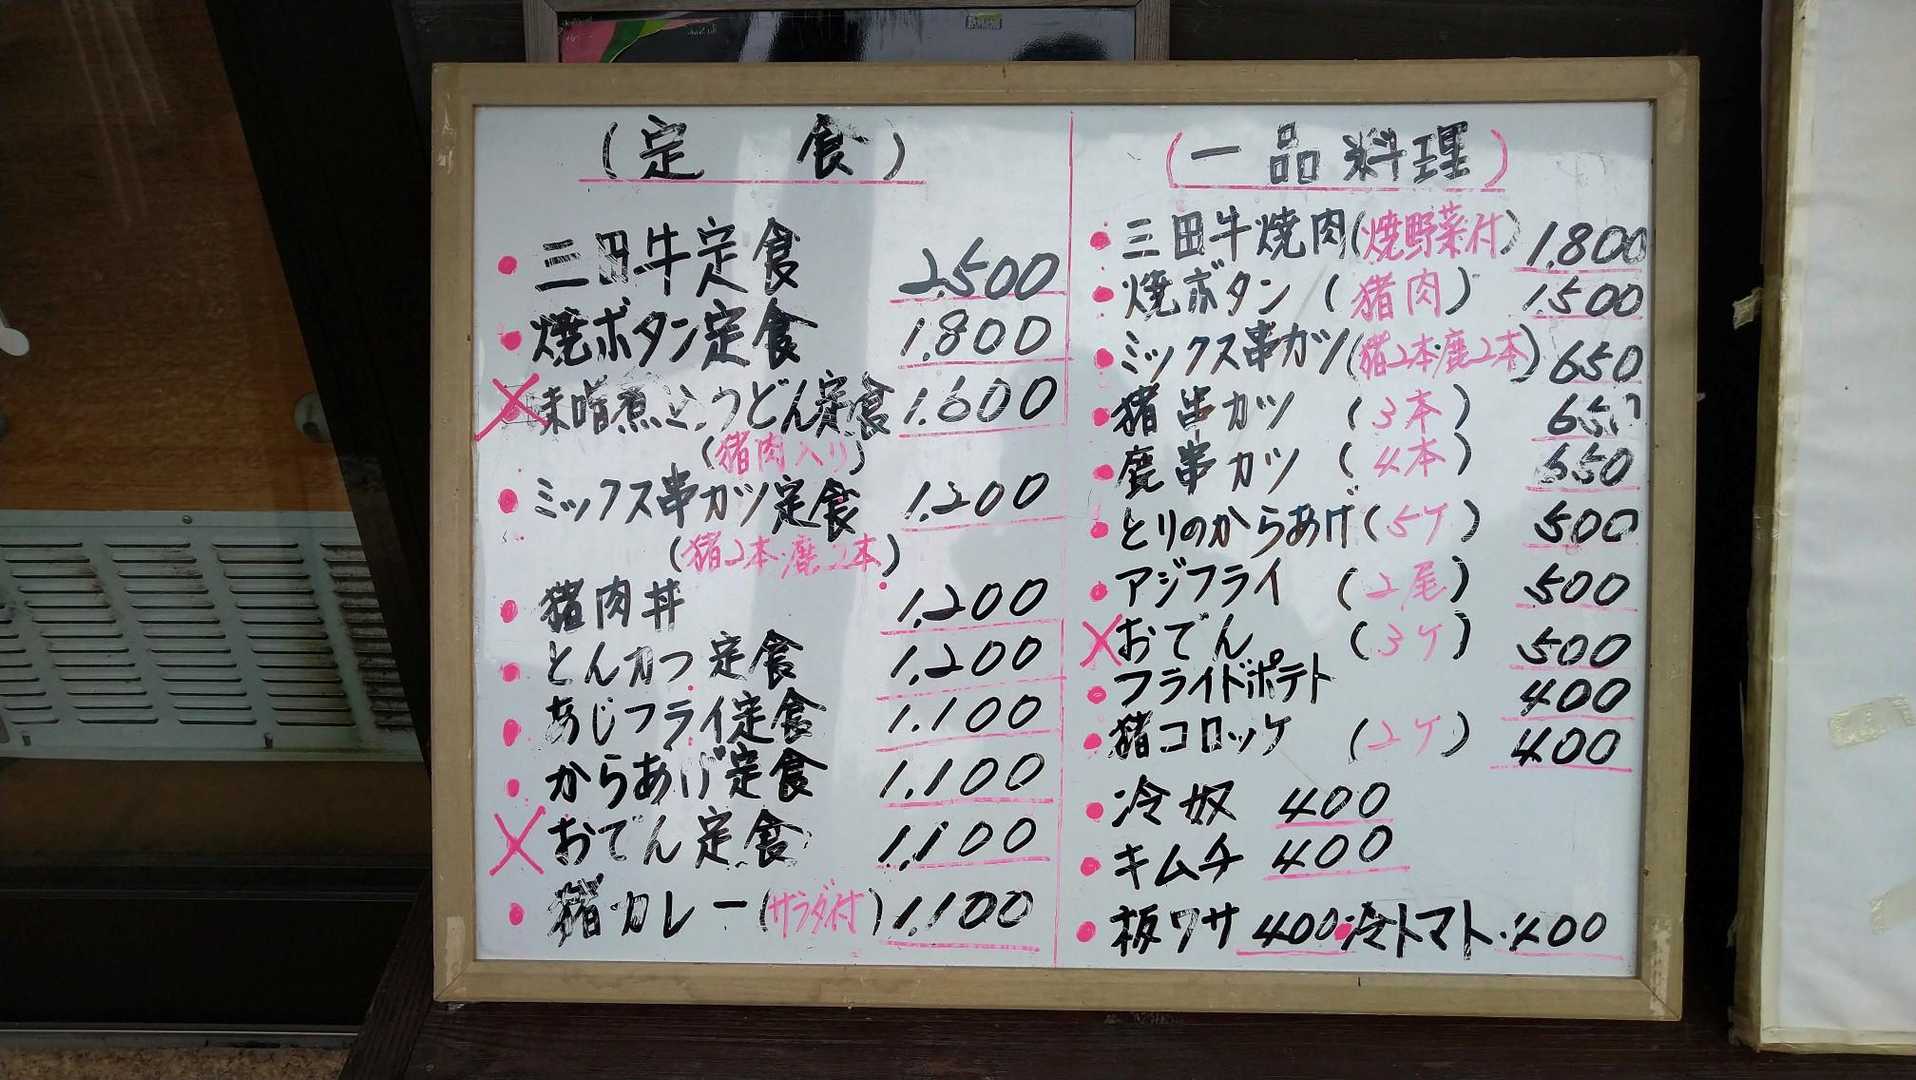 (定 食)
・三田牛定食 2,500
・焼ボタン定食 1,800
×味噌煮込うどん定食 1,600
(猪肉入り)
・ミックス串カツ定食 1,200
(猪2本・鹿2本)
・猪肉丼 1,200
・とんカツ定食 1,200
・あじフライ定食 1,100
・からあげ定食 1,100
×おでん定食 1,100
・猪カレー(サラダ付) 1,100
(一品料理)
・三田牛焼肉(焼野菜付) 1,800
・焼ボタン(猪肉) 1,500
・ミックス串カツ(猪2本・鹿2本) 650
・猪串カツ(3本) 650
・鹿串カツ(4本) 650
・とりのからあげ(5ケ) 500
・アジフライ(2尾) 500
×おでん(3ケ) 500
・フライドポテト 400
・猪コロッケ(2ケ) 400
・冷奴 400
・キムチ 400
・板ワサ 400・冷トマト・400